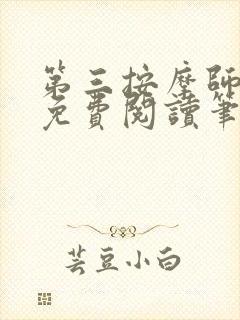 第三按摩師
免費閱讀筆
芸豆小白